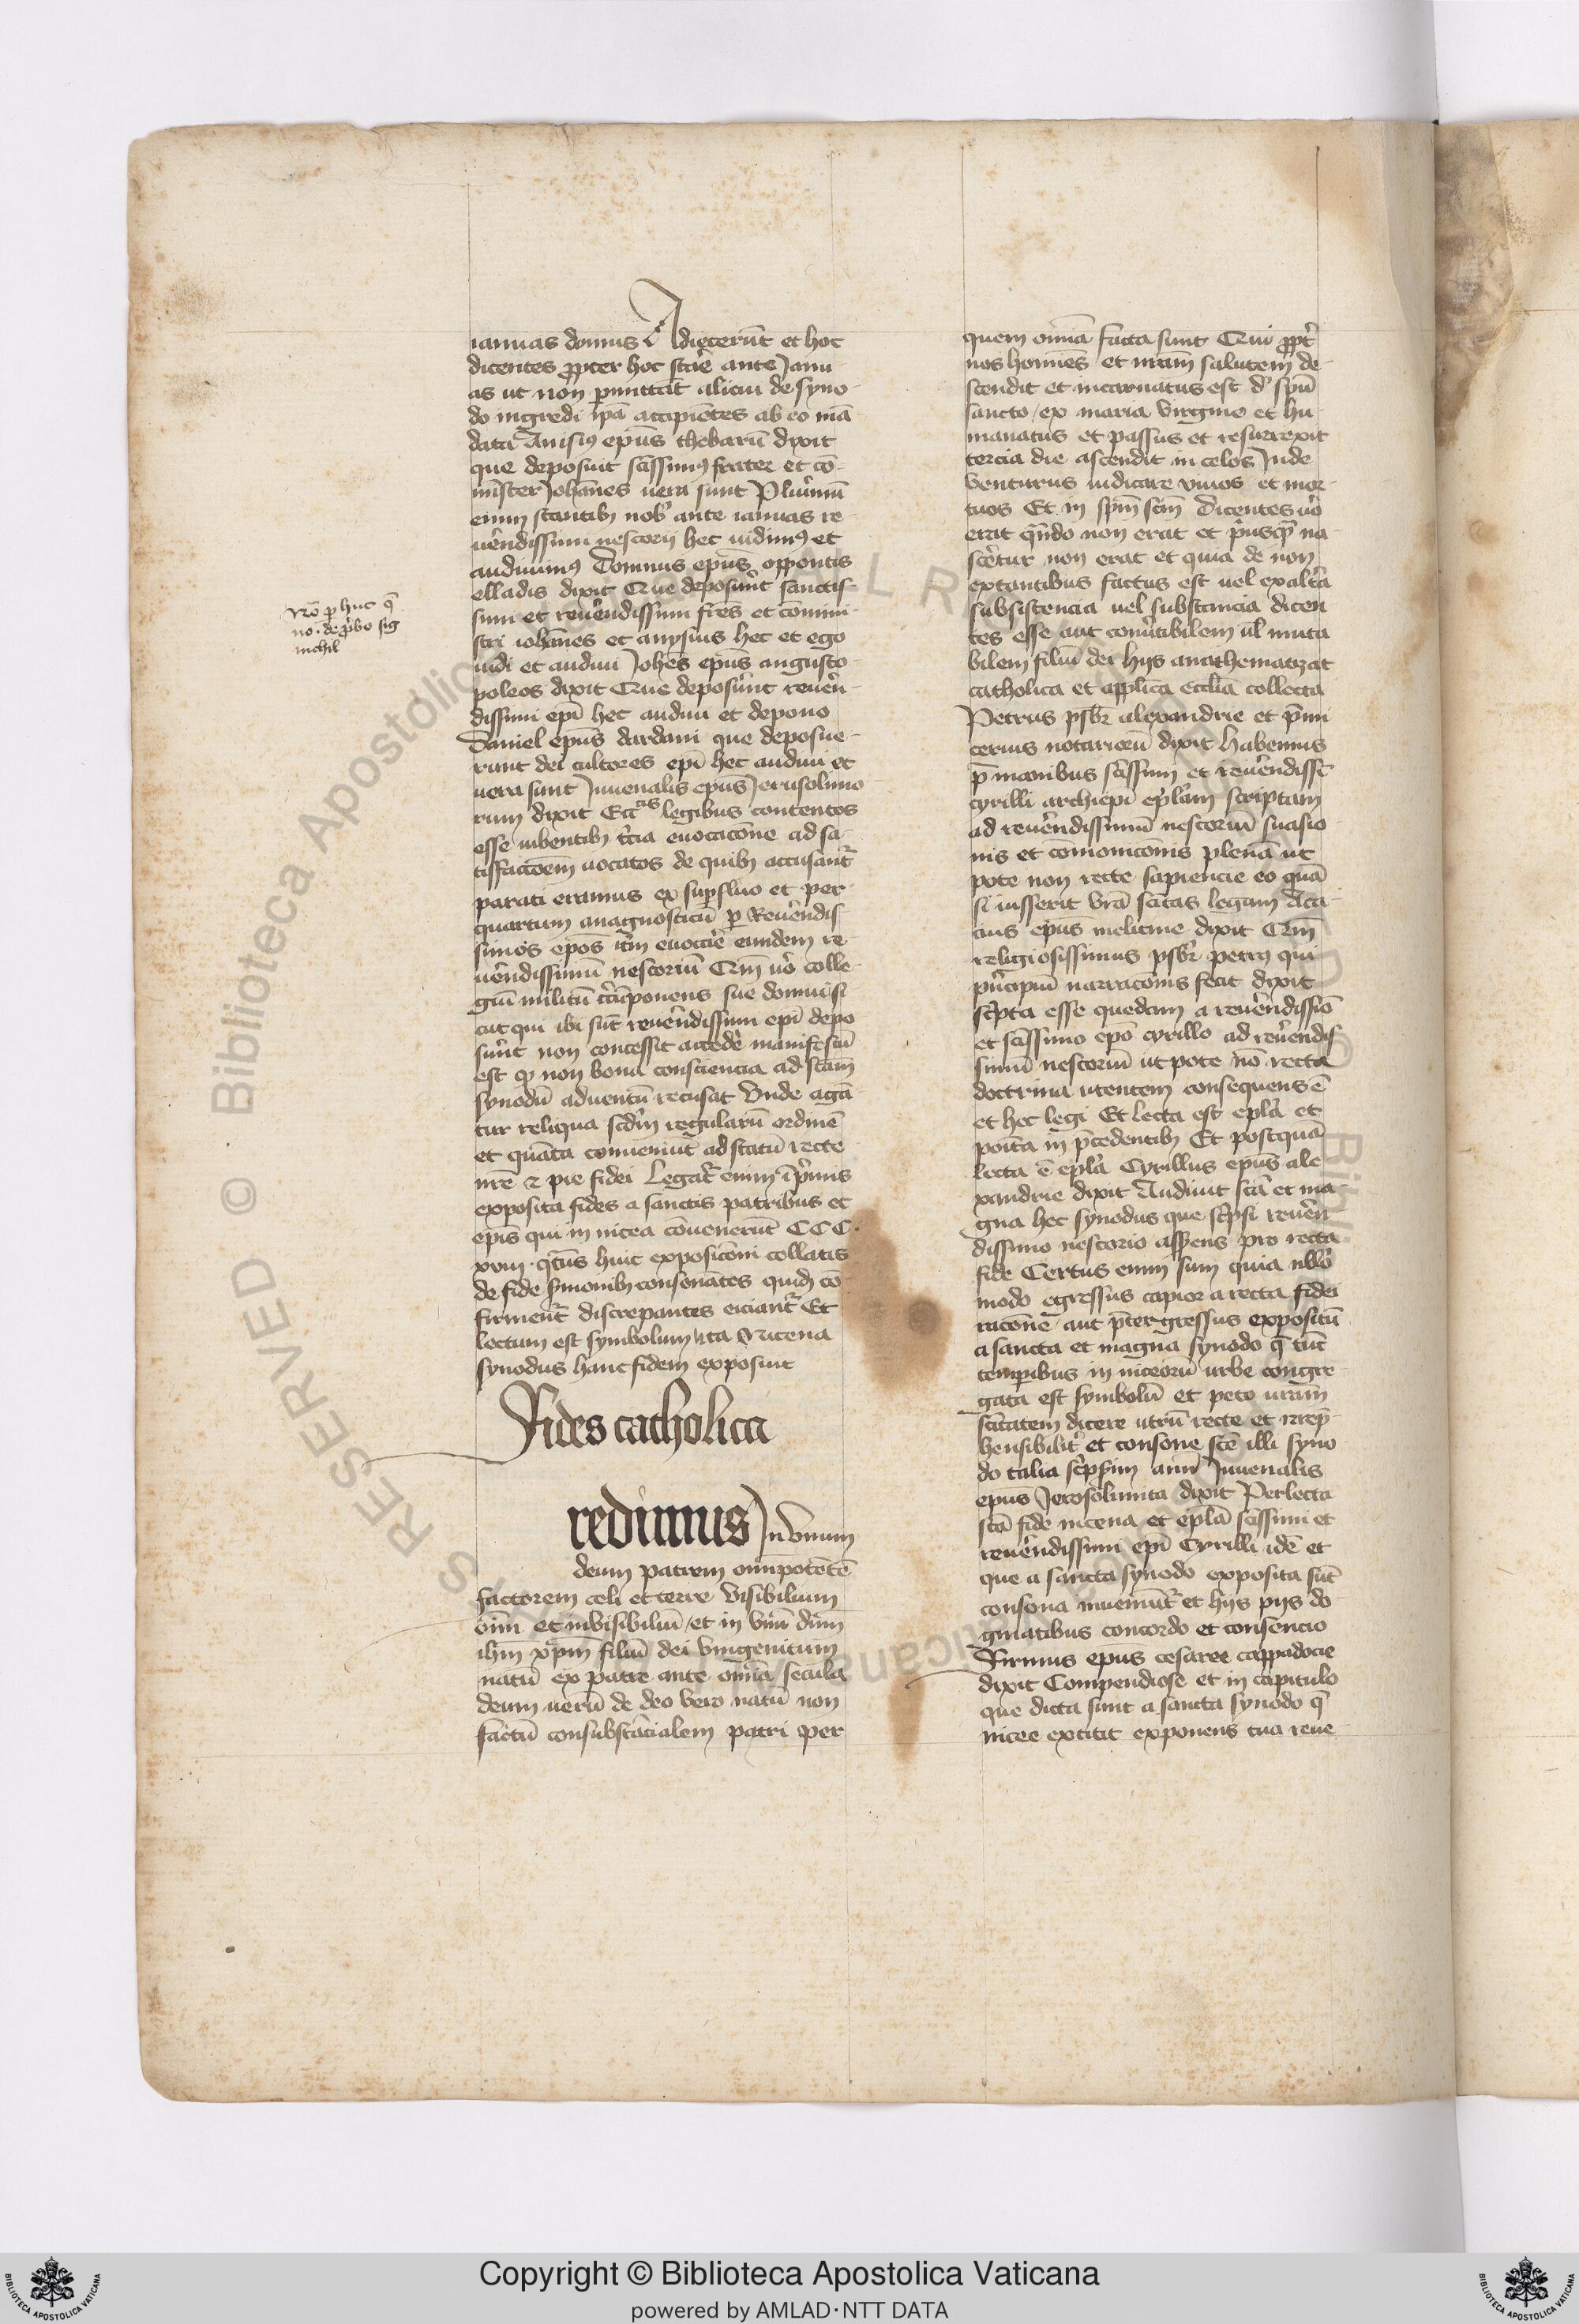 ianuas domus Adiecerūt et hoc
dicentes ꝓpter hoc stare ante Janu
as ut non ꝑmittāt alicui de syno
do ingredi ip̄a accipiētes ab eo mā
data Anisiꝰ ep̄us thebarū dixit
que deposuit sc̄issimꝰ frater et cō
minister Joha̅nes uera sunt Plurimū
enim stantibꝫ nobꝫ ante ianuas re
uerēdissimi nestorij hec uidimꝰ et
audiuimꝰ Domnus ep̄us opontis
elladis dixit Que deposuerūt sanctis
simi et reuerēdissimi fr̄es et cōmini
stri ioha̅nes et anysius hec et ego
uidi et audiui Joh̄es ep̄us augusto
poleos dixit Que deposuerūt reuerē
dissimi ep̄i hec audiui et depono
Daniel ep̄us dardani que deposue
runt dei cultores ep̄i hec audiui et
uera sunt Juuenalis ep̄us Jerusolimo
rum dixit legibus contentos
esse iubentibꝫ tercia euocacōne ad sa
tisfactōem uocatos de quibꝫ accusant᷑
parati eramus ex suꝑfluo et per
quartum anagnosticū ꝑ Reuerēdis
simos ep̄os it̄m euocare eundem re
uerēdissimū nestoriū Cū uero colle
giū militū ponens sue domui si
cut qui ibi sūt reuerēdissimi ep̄i depo
suerūt non concessit accedere manifestū
est ꝙ non bona consciencia ad sc̄am
synodū aduentū recusat Vnde agā
tur reliqua scd̄m regularū ordinē
et quāta conueniūt ad statū recte
nr̄e ⁊ pie fidei Legat᷑ enim īprimis
exposita fides a sanctis patribus et
ep̄is qui in nicea cōuenerūt CCC
xviii qt̄nus huic exposicōni collatis
de fide sermonibꝫ consonātes quidē cō
firment᷑ discrepantes eiciant᷑ Et
lectum est symbolum ita Nicena
synodus hanc fidem exposuit
Fides catholica
redimus In vnum
deum patrem om̄ipotētē
factorem celi et terre visibilium
oīm et inuisibiliū et in vnū dn̄m
ihm̄ xp̄m filiū dei vnigenitum
natū ex patre ante om̄ia secula
deum uerū de deo vero natū non
factū consubstācialem patri per
Nō ꝑ huc q̄
no. de ṽbo sig
nichil
quem om̄ia facta sunt Qui ꝓpt̄
nos homīes et nr̄am salutem de
scendit et incarnatus est de sp̄u
sancto ex maria virgine et hu
manatus et passus et resurrexit
tercia die ascendit in celos Inde
venturus iudicare viuos et mor
tuos Et in sp̄m sc̄m Dicentes uero
erat qn̄do non erat et priusq̄ꝫ na
sceretur non erat et quia de non
extantibus factus est uel ex altera
subsistencia uel substancia dicen
tes esse aut conuertibilem ul̄ muta
bilem filiū dei hijs anathematizat
catholica et applīca eccl̄ia collecta
Petrus psb̄r alexandrie et pr̄mi
cerius notariorū dixit Habemus
p̄ manibus sc̄issimi et reuerēdissī
cyrilli archiep̄i ep̄l̄am scriptam
ad reuerēdissimū nestoriū suasio
nis et cōmonicōnis plenā ut
pote non recte sapiencie eo quā
si iusserit vr̄a sc̄itas legam Aca
cius ep̄us melitine dixit Qm̄
religiosissimus psb̄r petrꝰ qui
principiū narracōnis fecit dixit
scripta esse quedam a reuerēdissīo
et sc̄issimo ep̄o cyrillo ad reuerēdis
simū nestoriū utpote nō recta
doctrina utentem consequens ē
et hec legi Et lecta est ep̄l̄a et
poīta in p̄cedentibꝫ Et postquā
lecta ē ep̄l̄a Cyrillus ep̄us ale
xandrie dixit Audiuit sc̄a et ma
gna hec synodus que scripsi reuerē
dissimo nestorio assīens pro recta
fide Certus enim sum quia nullo
modo egressus capior a recta fidei
racōne aut p̄tergressus expositū
a sancta et magna synodo q̄ tūc
temꝑibus in niceorū urbe congre
gata est symbolū et peto uram̄
sc̄itatem dicere utrū recte et irrep̄
hensibiliter et consone sc̄e illi syno
do talia scripserim an nō Juuenalis
epus Jerosolimita dixit Perlecta
sc̄a fide nicena et ep̄la sc̄issimi et
reuerēdissimi ep̄i Cyrilli idē et
que a sancta synodo exposita sūt
consona inueniūt᷑ et hijs pijs do
gmatibus concordo et consencio
Firmus ep̄us cesaree cappadocie
dixit Compendiose et in capitulo
que dicta sunt a sancta synodo q̄
nicee extitit exponens tua reue
Copyright © Biblioteca Apostolica Vaticana
powered by AMLAD·NTT DATA